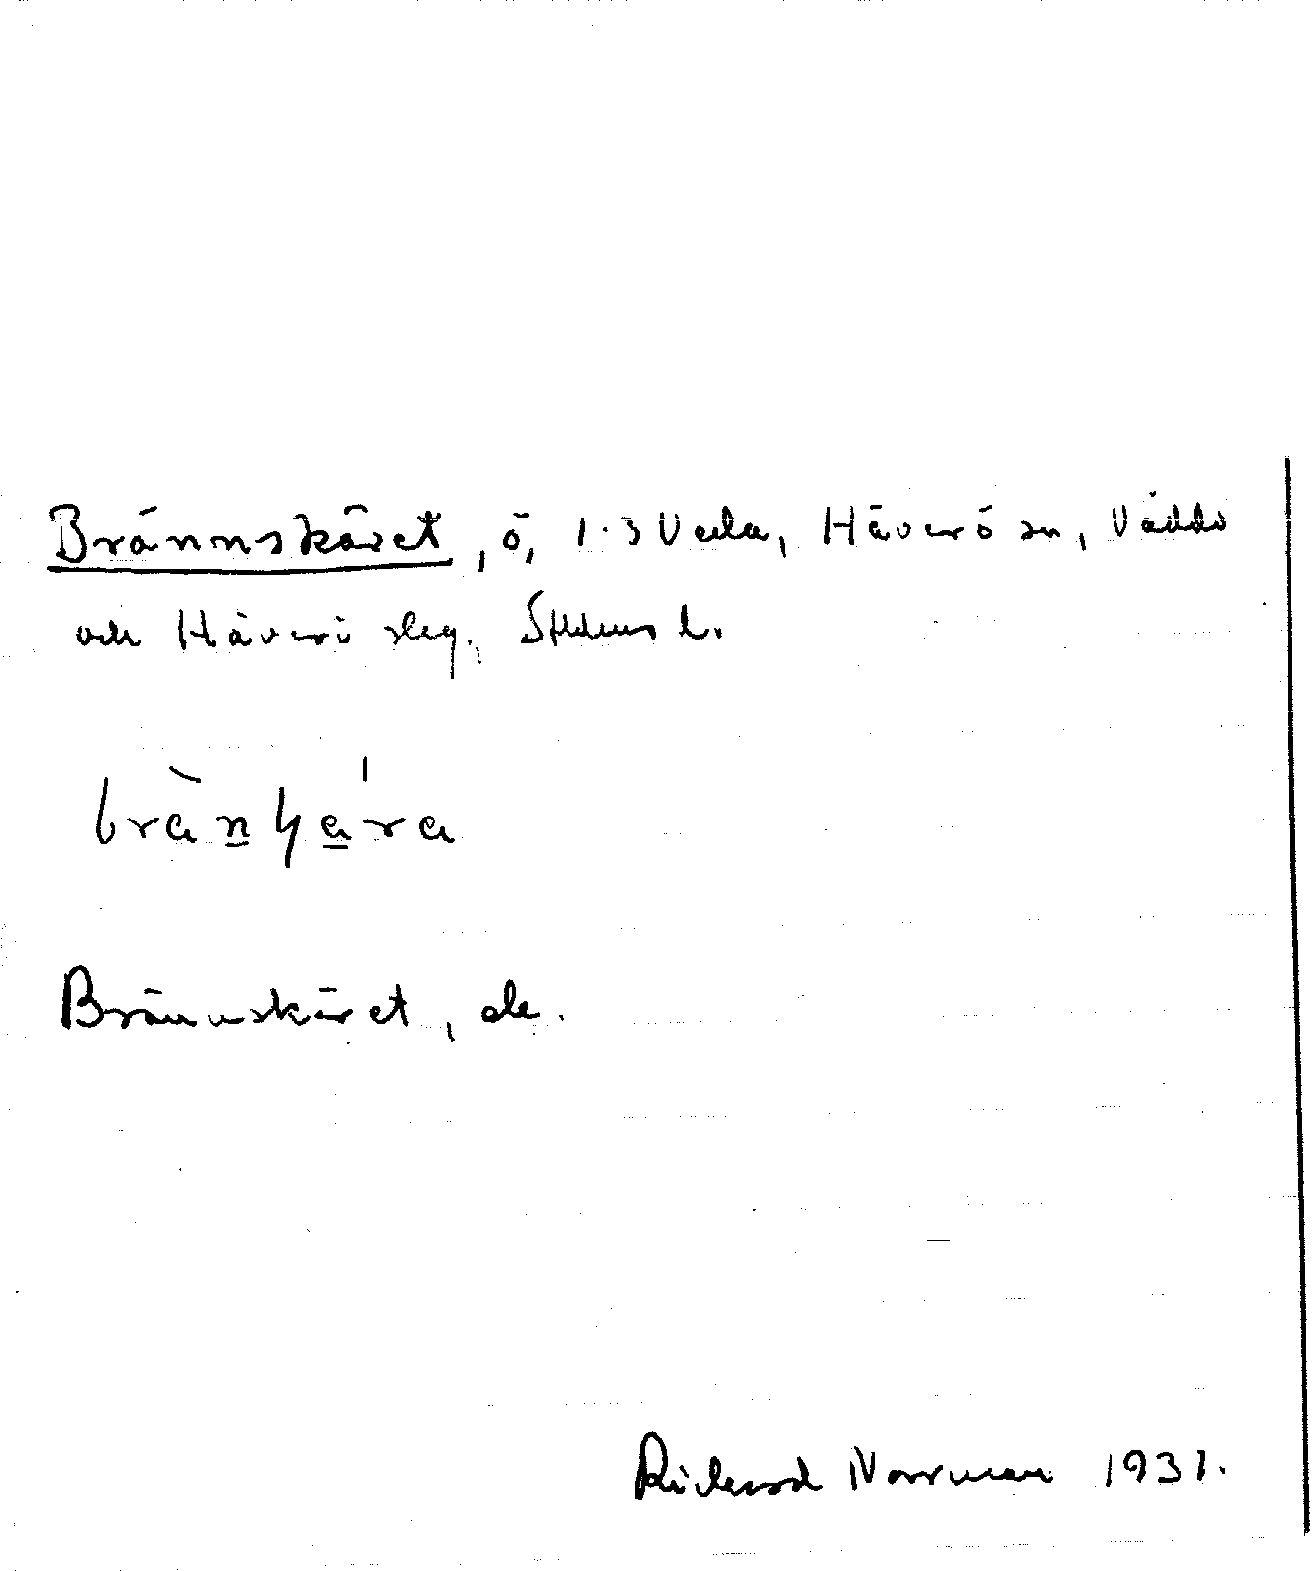 Brännskäret, ö, 1.3 Veda, Häverö sn, Väddö
och Häverö slg. Sthlms l.
Brännskäret, ek.
Rickard Norrman 1931.